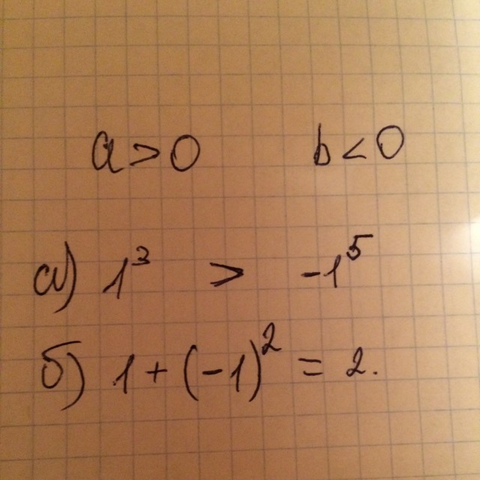 a > 0 b < 0
а) 1³ > -1⁵
б) 1 + (-1)² = 2.